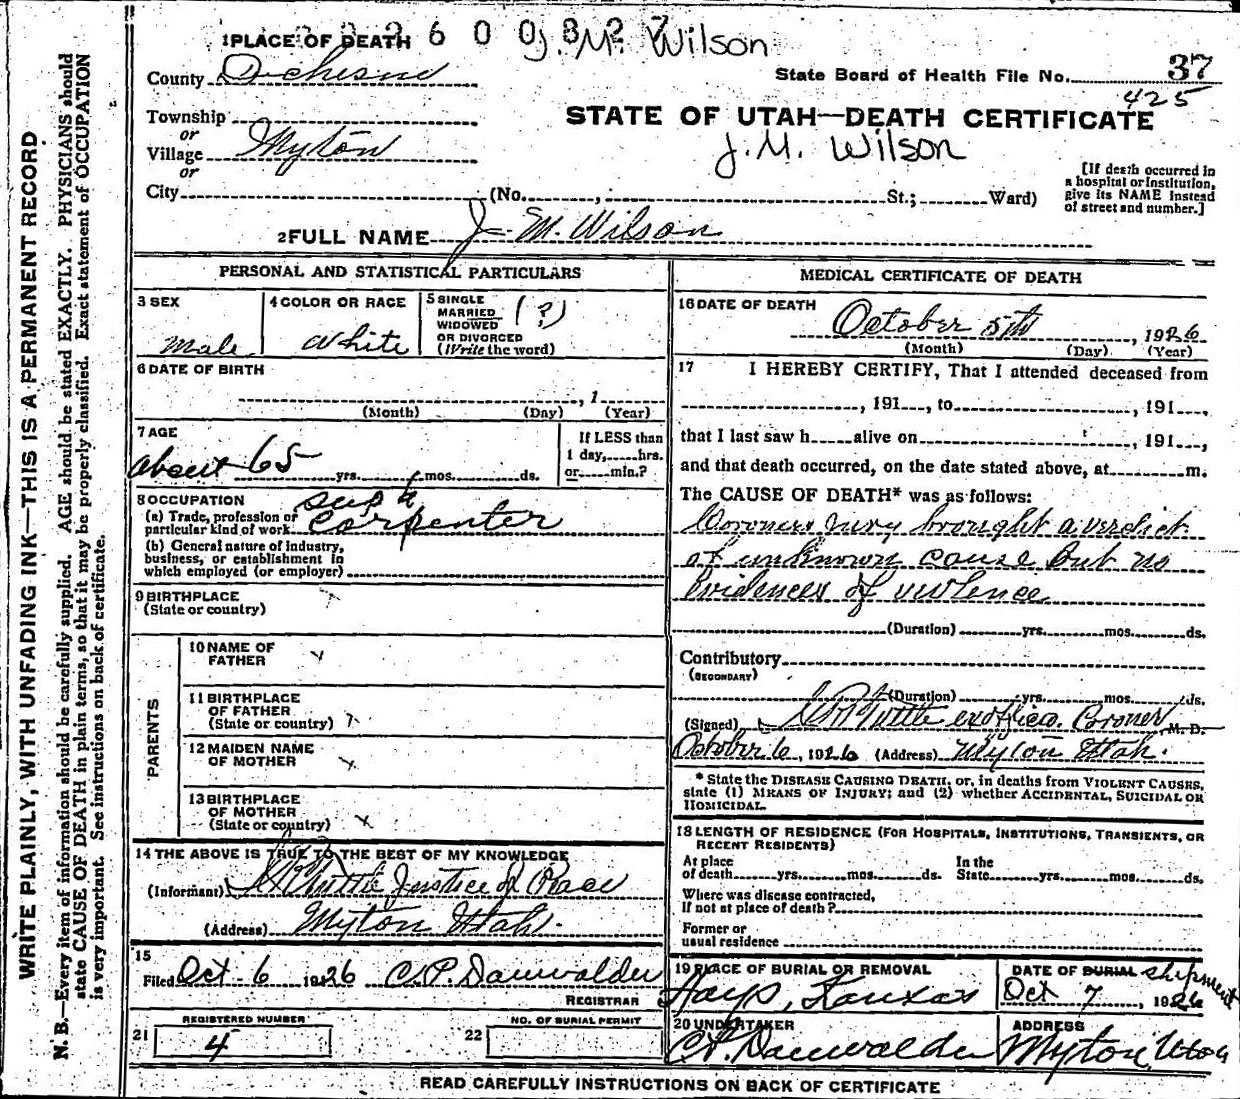 1 PLACE OF DEATH
2 6 0 0 J. M. Wilson
County Duchesne
State Board of Health File No. 37
425
Township
or
Village Myton
or
City (No. , St.; Ward)
STATE OF UTAH—DEATH CERTIFICATE
J. M. Wilson
[If death occurred in
a hospital or institution,
give its NAME instead
of street and number.]
2 FULL NAME J- M. Wilson
PERSONAL AND STATISTICAL PARTICULARS
3 SEX
Male
4 COLOR OR RACE
White
5 SINGLE
MARRIED
WIDOWED
OR DIVORCED
(Write the word)
(?)
6 DATE OF BIRTH
, 1
(Month) (Day) (Year)
7 AGE
about 65 yrs. mos. ds.
If LESS than
1 day, hrs.
or min.?
8 OCCUPATION
(a) Trade, profession or
particular kind of work
carpenter
(b) General nature of industry,
business, or establishment in
which employed (or employer)
9 BIRTHPLACE
(State or country) ?
PARENTS
10 NAME OF
FATHER
11 BIRTHPLACE
OF FATHER
(State or country) ?
12 MAIDEN NAME
OF MOTHER
13 BIRTHPLACE
OF MOTHER
(State or country) x
14 THE ABOVE IS TRUE TO THE BEST OF MY KNOWLEDGE
(Informant) Tuttle Justice of Peace
(Address) Myton Utah.
15
Filed Oct 6 1926 C. P. Dannwalder
REGISTRAR
21 REGISTERED NUMBER
4
22 NO. OF BURIAL PERMIT
MEDICAL CERTIFICATE OF DEATH
16 DATE OF DEATH
October 5th, 1926
(Month) (Day) (Year)
17 I HEREBY CERTIFY, That I attended deceased from
, 191 , to , 191 ,
that I last saw h alive on , 191 ,
and that death occurred, on the date stated above, at m.
The CAUSE OF DEATH* was as follows:
Coroners jury brought a verdict
of unknown cause but no
Evidences of violence
(Duration) yrs. mos. ds.
Contributory
(SECONDARY)
(Duration) yrs. mos. ds.
(Signed) Tuttle exofficio Coroner M. D.
October 6, 1926 (Address) Myton Utah.
* State the DISEASE CAUSING DEATH, or, in deaths from VIOLENT CAUSES,
state (1) MEANS OF INJURY; and (2) whether ACCIDENTAL, SUICIDAL OR
HOMICIDAL.
18 LENGTH OF RESIDENCE (FOR HOSPITALS, INSTITUTIONS, TRANSIENTS, OR
RECENT RESIDENTS)
At place
of death yrs. mos. ds.
In the
State yrs. mos. ds.
Where was disease contracted,
If not at place of death?
Former or
usual residence
19 PLACE OF BURIAL OR REMOVAL
Hays, Kansas
DATE OF BURIAL shipment
Oct 7, 1926
20 UNDERTAKER
C. P. Dannwalder
ADDRESS
Myton, Utah
READ CAREFULLY INSTRUCTIONS ON BACK OF CERTIFICATE
WRITE PLAINLY, WITH UNFADING INK—THIS IS A PERMANENT RECORD
N. B.—Every item of information should be carefully supplied. AGE should be stated EXACTLY. PHYSICIANS should
state CAUSE OF DEATH in plain terms, so that it may be properly classified. Exact statement of OCCUPATION
is very important. See instructions on back of certificate.